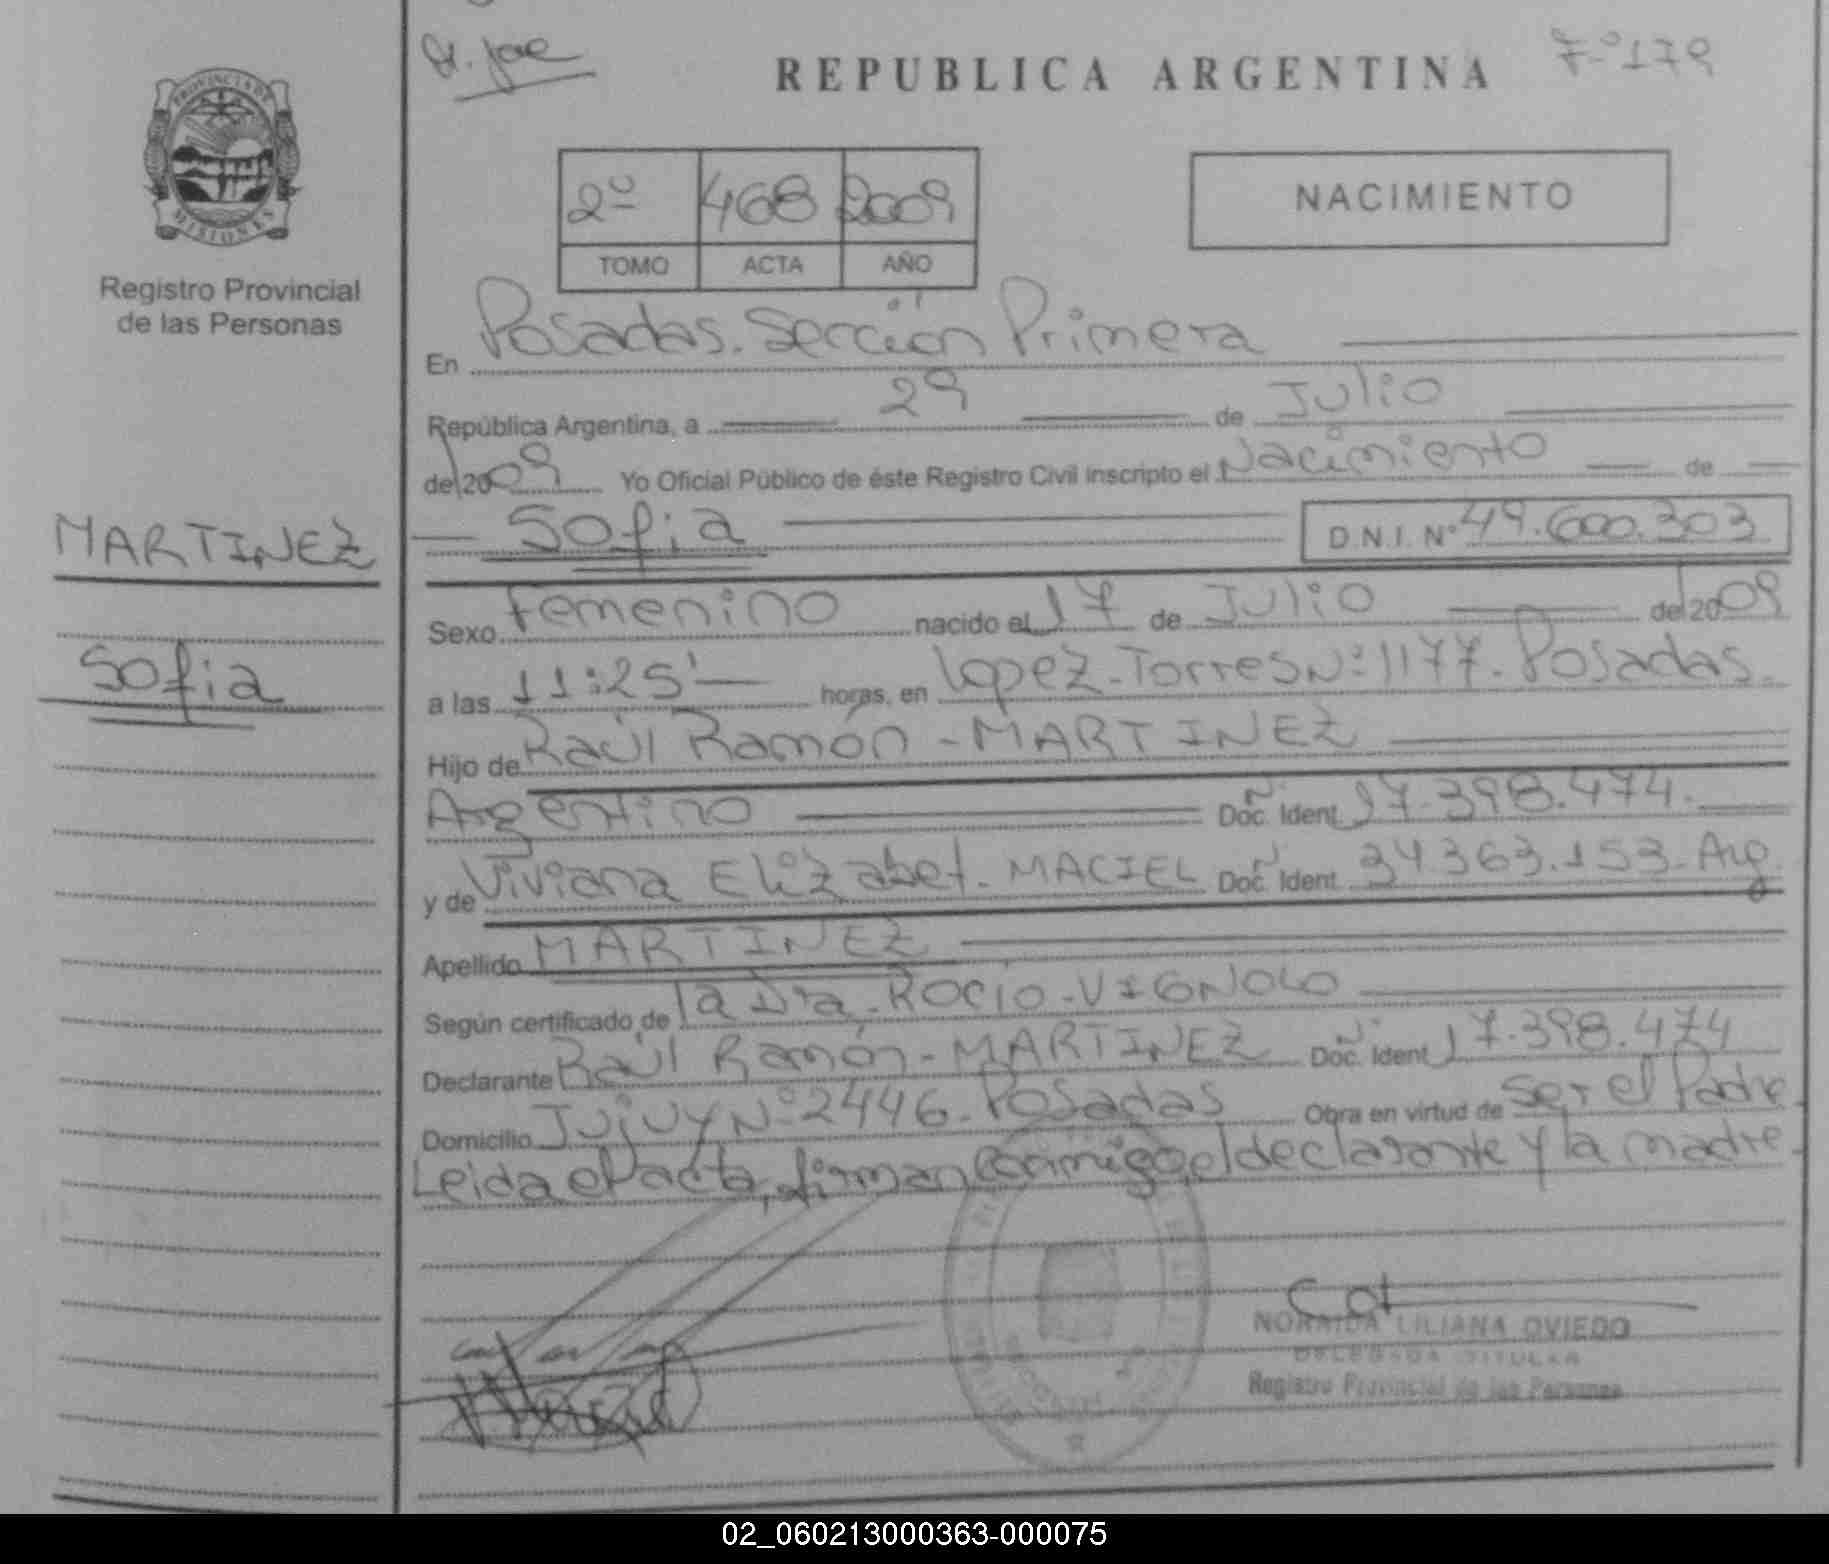 REPUBLICA ARGENTINA
Fº179
PROVINCIA DE
MISIONES
Registro Provincial
de las Personas
2º 468 2009
TOMO ACTA AÑO
NACIMIENTO
En Posadas. Sección Primera
República Argentina, a 29 de Julio
del 2009 Yo Oficial Público de éste Registro Civil inscripto el Nacimiento de
MARTINEZ
Sofia
Sofia D.N.I. Nº 49.600.303
Sexo Femenino nacido el 17 de Julio del 2009
a las 11:25' horas, en Lopez Torres Nº 1177. Posadas.
Hijo de Raúl Ramón - MARTINEZ
Argentino Doc. Ident. 17.398.474.
y de Viviana Elizabet. MACIEL Doc. Ident. 34.363.153. Arg.
Apellido MARTINEZ
Según certificado de la Dra. Rocio. VIGNOLO
Declarante Raúl Ramón - MARTINEZ Doc. Ident. 17.398.474
Domicilio Jujuy Nº 2446. Posadas Obra en virtud de ser el Padre.
Leida el acta, firman conmigo, el declarante y la madre.
NORAIDA LILIANA OVIEDO
DELEGADA TITULAR
Registro Provincial de las Personas
02_060213000363-000075